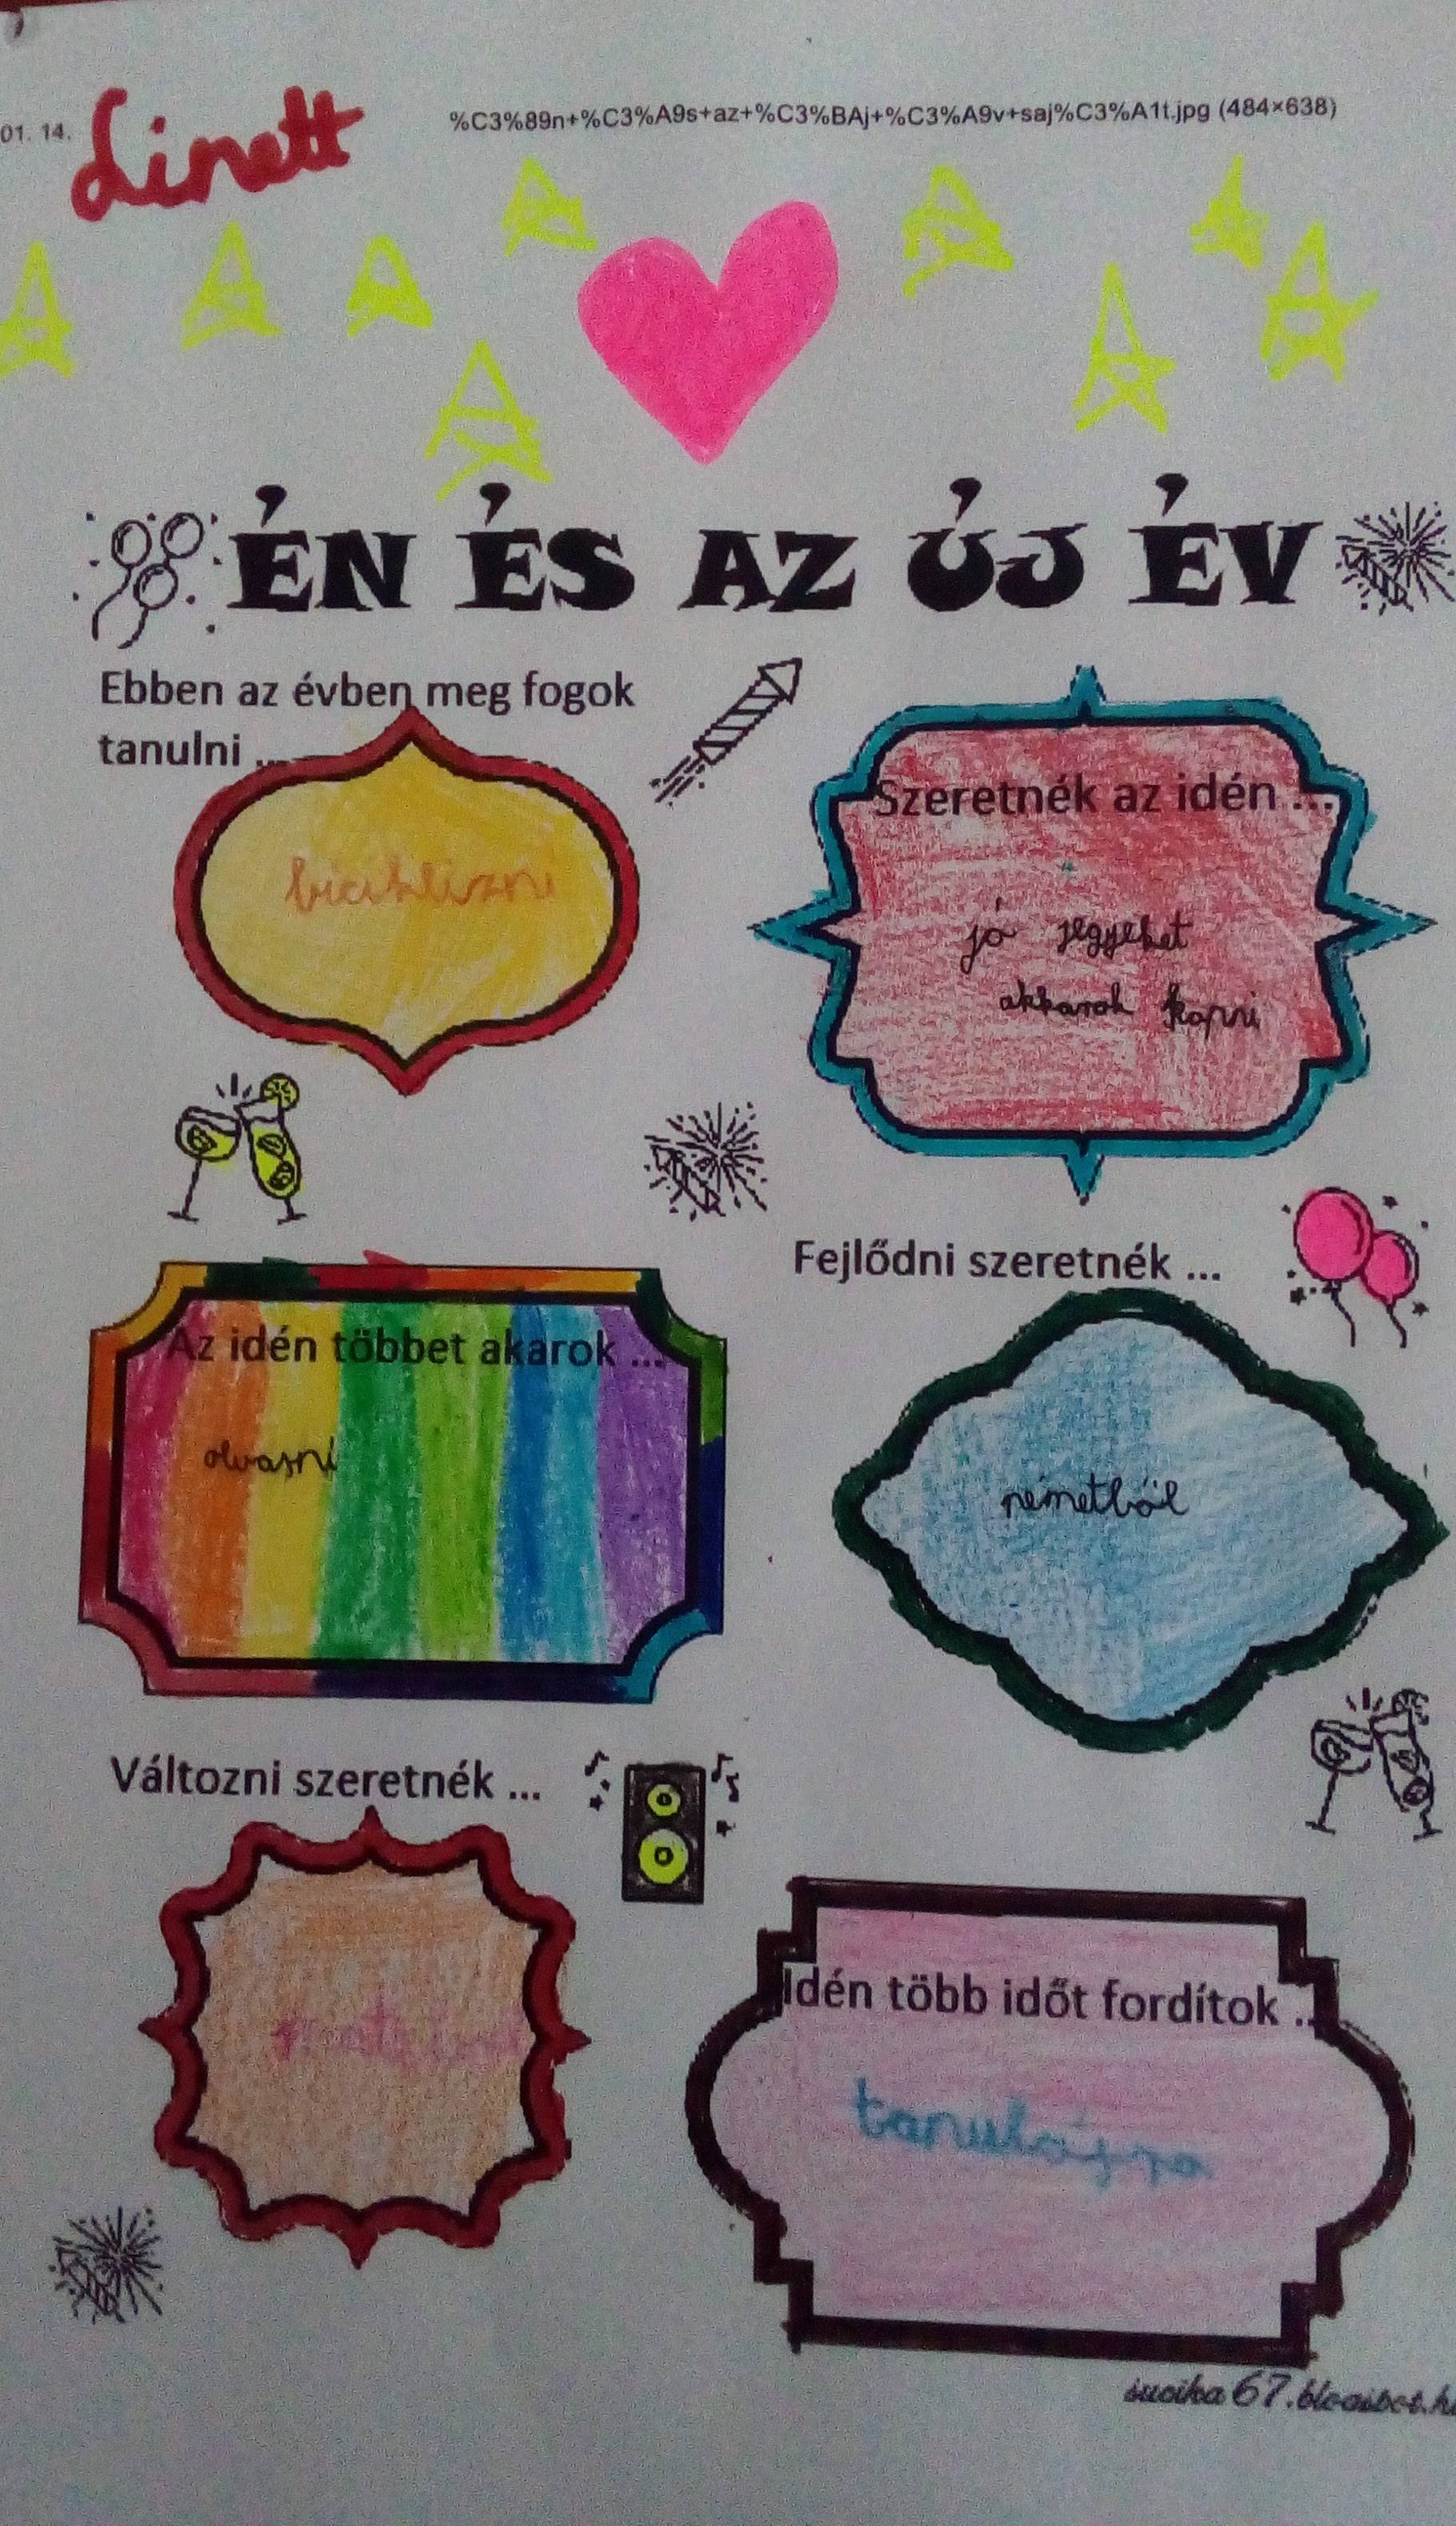 01. 14.
Linett
%C3%89n+%C3%A9s+az+%C3%BAj+%C3%A9v+saj%C3%A1t.jpg (484×638)
ÉN ÉS AZ ÚJ ÉV
Ebben az évben meg fogok
tanulni ...
biciklizni
Szeretnék az idén ...
jó jegyeket
akkarok kapni
Az idén többet akarok ...
olvasni
Fejlődni szeretnék ...
németból
Változni szeretnék ...
Idén több időt fordítok ..
tanulásra